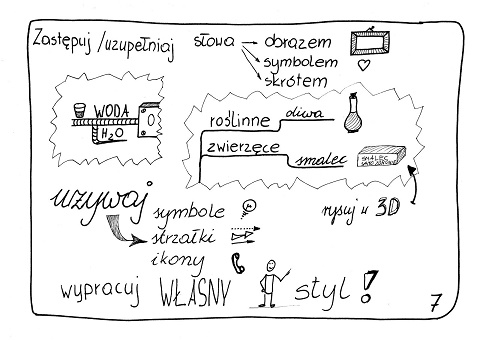 Zastępuj / uzupełniaj słowa → obrazem
symbolem
skrótem
WODA
H₂O
roślinne oliwa
zwierzęce smalec
SMALEC
używaj
symbole
strzałki
ikony
rysuj w 3D
wypracuj WŁASNY styl!
7